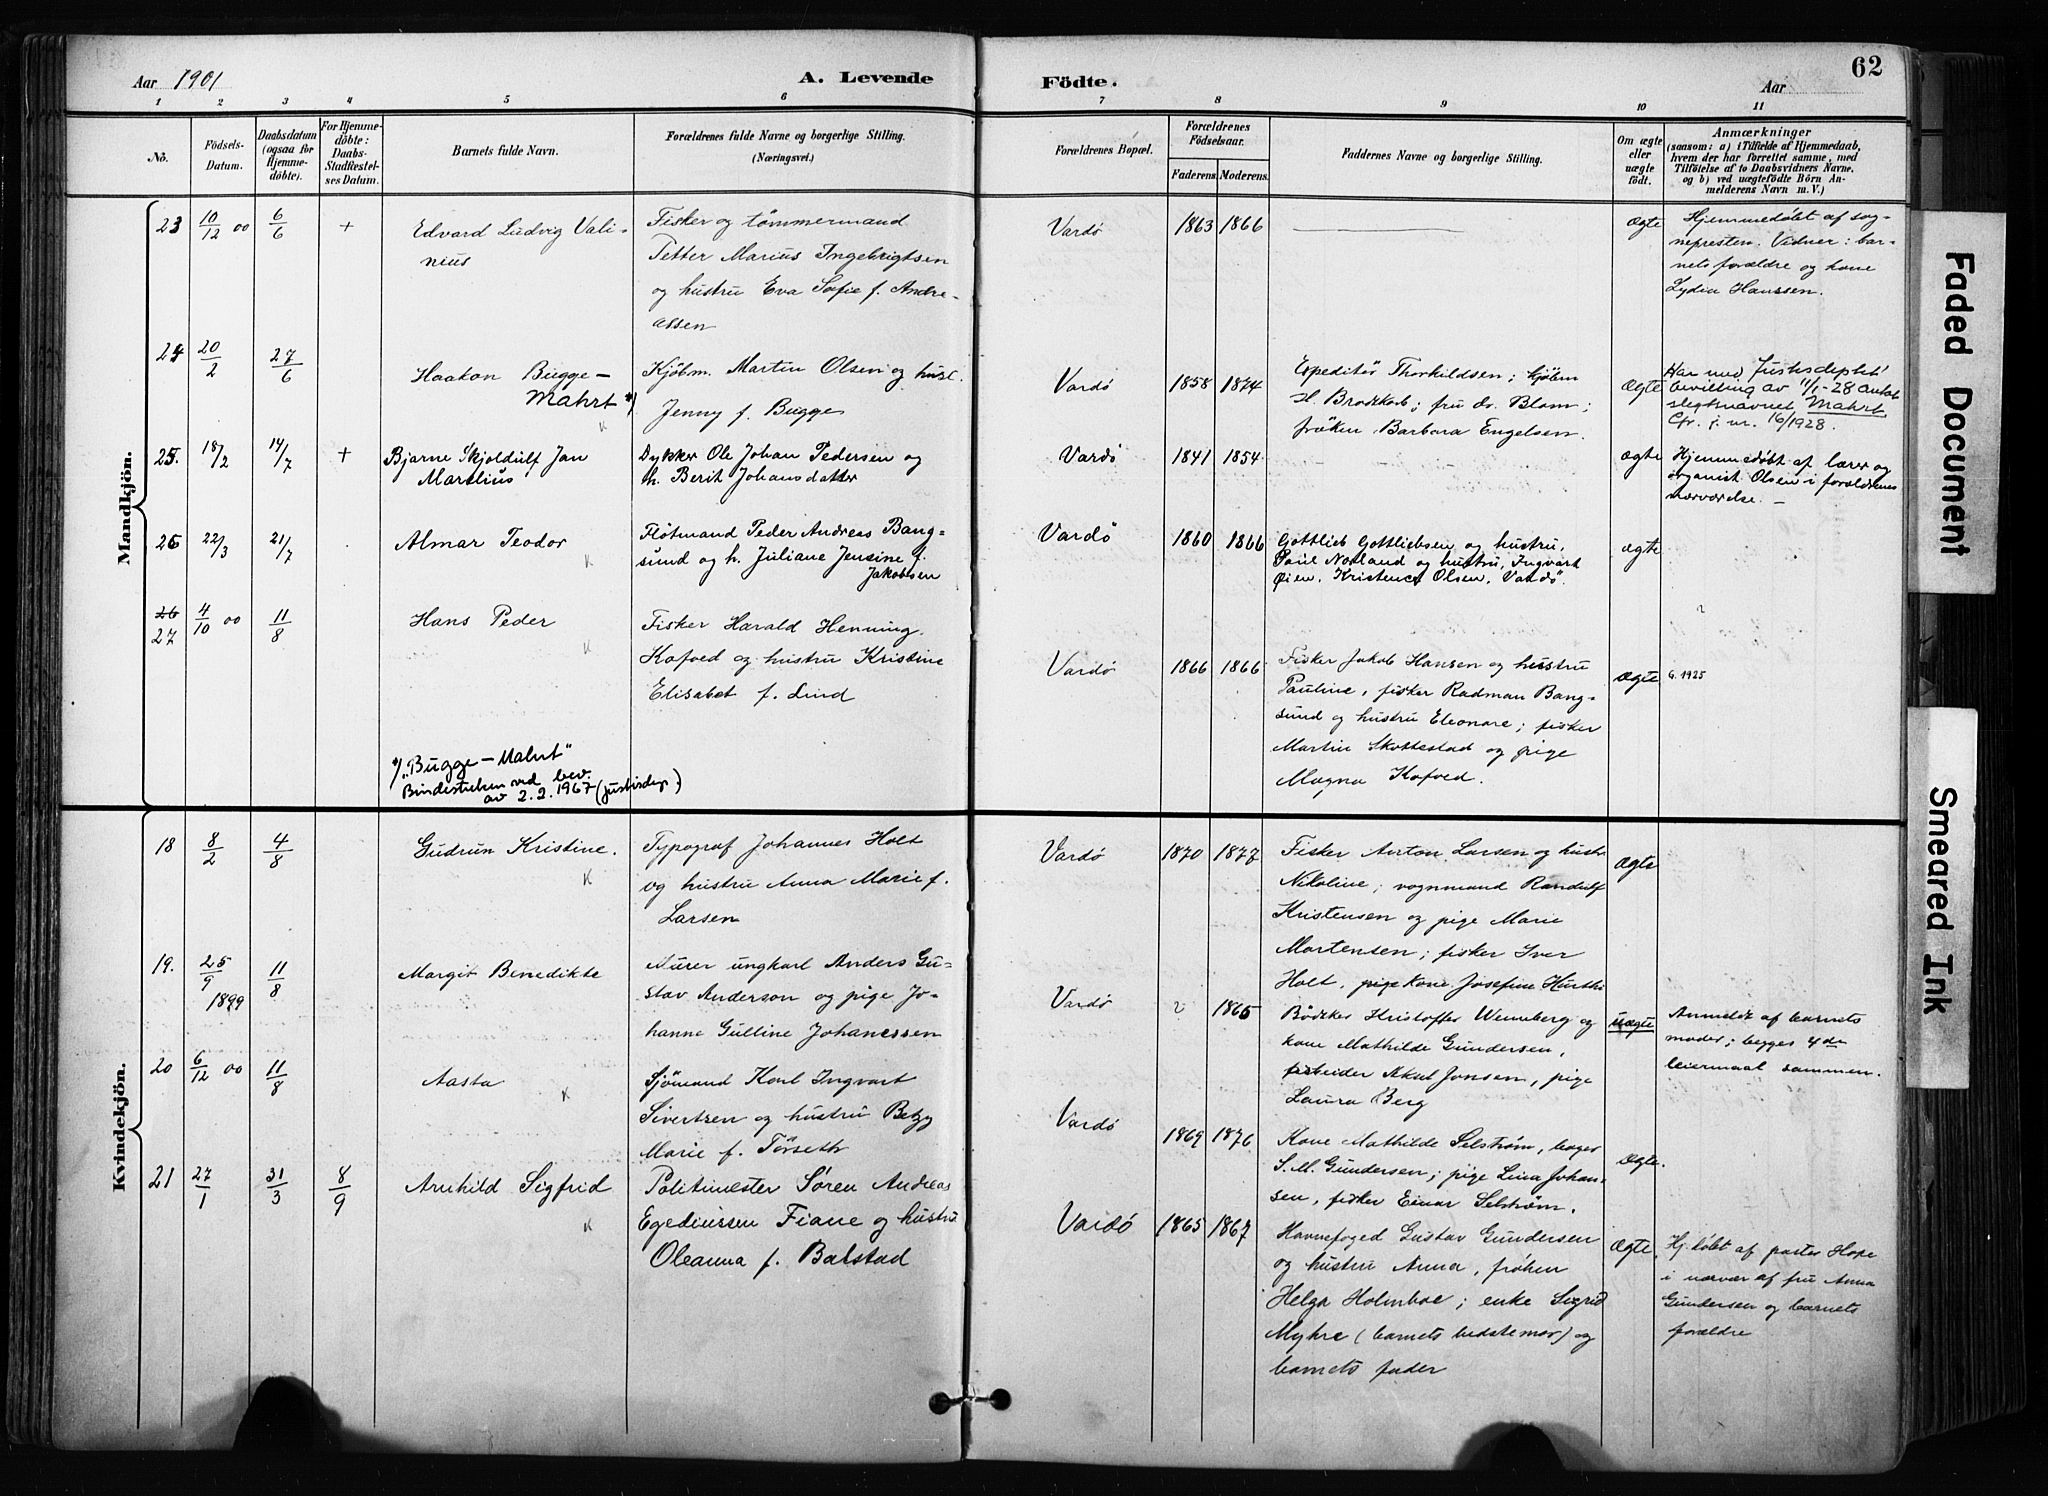 Aar 1901
A. Levende
Födte.
Aar
62
1 2 3 4 5 6 7 8 9 10 11
No.
Födsels-Datum.
Daabsdatum (ogsaa for Hjemme-döbte).
For Hjemme-döbte: Daabs-Stadfæstel-ses Datum.
Barnets fulde Navn.
Forældrenes fulde Navne og borgerlige Stilling.
(Næringsvei.)
Forældrenes Bopæl.
Forældrenes Födselsaar.
Faderens. Moderens.
Faddernes Navne og borgerlige Stilling.
Om ægte eller uægte födt.
Anmærkninger
(saasom: a) i Tilfælde af Hjemmedaab, hvem der har forrettet samme, med Tilföielse af to Daabsvidners Navne, og b) ved uægtefödte Börn An-melderens Navn m. V.)
Mandkjön.
23 10/12 00 6/6 + Edvard Ludvig Vali-
nius
Fisker og tømmermand
Petter Marius Ingebrigtsen
og hustru Eva Sofie f. Andre-
assen
Vardø 1863 1866
Ægte
Hjemmedøbt af sog-
nepresten. Vidner: bar-
nets forældre og kone
Lydia Hanssen.
24 20/2 27/6
Haakon Bugge-
Mahrt *)
Kjøbm. Martin Olsen og hust.
Jenny f. Bugge
Vardø 1858 1874
Expeditør Thorkildsen; kjøbm
H. Brodtkorb; fru dr. Blom;
frøken Barbara Engelsen.
Ægte
Har med Justisdeptet
bevilling av 11/1-28 antat
slegtsnavnet Mahrt
Cfr. j. nr. 16/1928.
25. 18/2 14/7 + Bjarne Skjoldulf Jan
Martlius
Dykker Ole Johan Pedersen og
h. Berit Johansdatter
Vardø 1841 1854
ægte
Hjemmedøbt af lærer og
organist Olsen i forældrenes
nærværelse. —
26 22/3 21/7 Almar Teodor
Flötmand Peder Andreas Bang-
sund og h. Juliane Jensine f.
Jakobsen
Vardø 1860 1866
Gottlieb Gottliebsen og hustru,
Paul Notland og hustru, Ingvart
Øien, Kristence Olsen, Vardø.
ægte
26
27 4/10 00 11/8 Hans Peder
Fisker Harald Henning
Kofoed og hustru Kristine
Elisabet f. Lind
Vardø 1866 1866
Fisker Jakob Hansen og hustru
Pauline, fisker Radman Bang-
sund og hustru Eleonare; fisker
Martin Skottestad og pige
Magna Kofoed.
Ægte
G. 1925
*) "Bugge-Mahrt"
Bindestreken ved bev.
av 2.2.1967 (justisdep.)
Kvindekjön.
18 8/2 4/8 Gudrun Kristine.
Typograf Johannes Holt
og hustru Anna Marie f.
Larsen
Vardø 1870 1877
Fisker Anton Larsen og hustr.
Nikoline; vognmand Randulf
Kristensen og pige Marie
Mortensen; fisker Iver
Holt, pige kone Josefine
Ægte
19. 25/9 1899 11/8 Margit Benedikte
Murer ungkarl Anders Gu-
stav Anderson og pige Jo-
hanne Gulline Johanessen
Vardø 1865
Bødker Kristoffer Wenneberg og
kone Mathilde Gundersen,
arbeider Jonsen, pige
Laura Berg
uægte
Anmeldt af barnets
moder; begges 4de
leiermaal sammen.
20 6/12 00 11/8 Aasta
Sjømand Karl Ingvart
Sivertsen og hustru Betzy
Marie f. Törseth
Vardø 1869 1876
Kone Mathilde Selstrøm, bager
S. M. Gundersen; pige Lina Johan-
sen, fisker Einar Selstrøm.
Ægte.
21 27/1 31/3 8/9 Arnhild Sigfrid
Politimester Søren Andreas
Egediussen Fiane og hustru
Oleanna f. Balstad
Vardö 1865 1867
Havnefoged Gustav Gundersen
og hustru Anna, frøken
Helga Holmboe; enke Sigrid
Myhre (barnets bedstemor) og
barnets fader
Ægte
Hj. døbt af pastor Hope
i nærvær af fru Anna
Gundersen og barnets
forældre
Faded Document
Smeared Ink